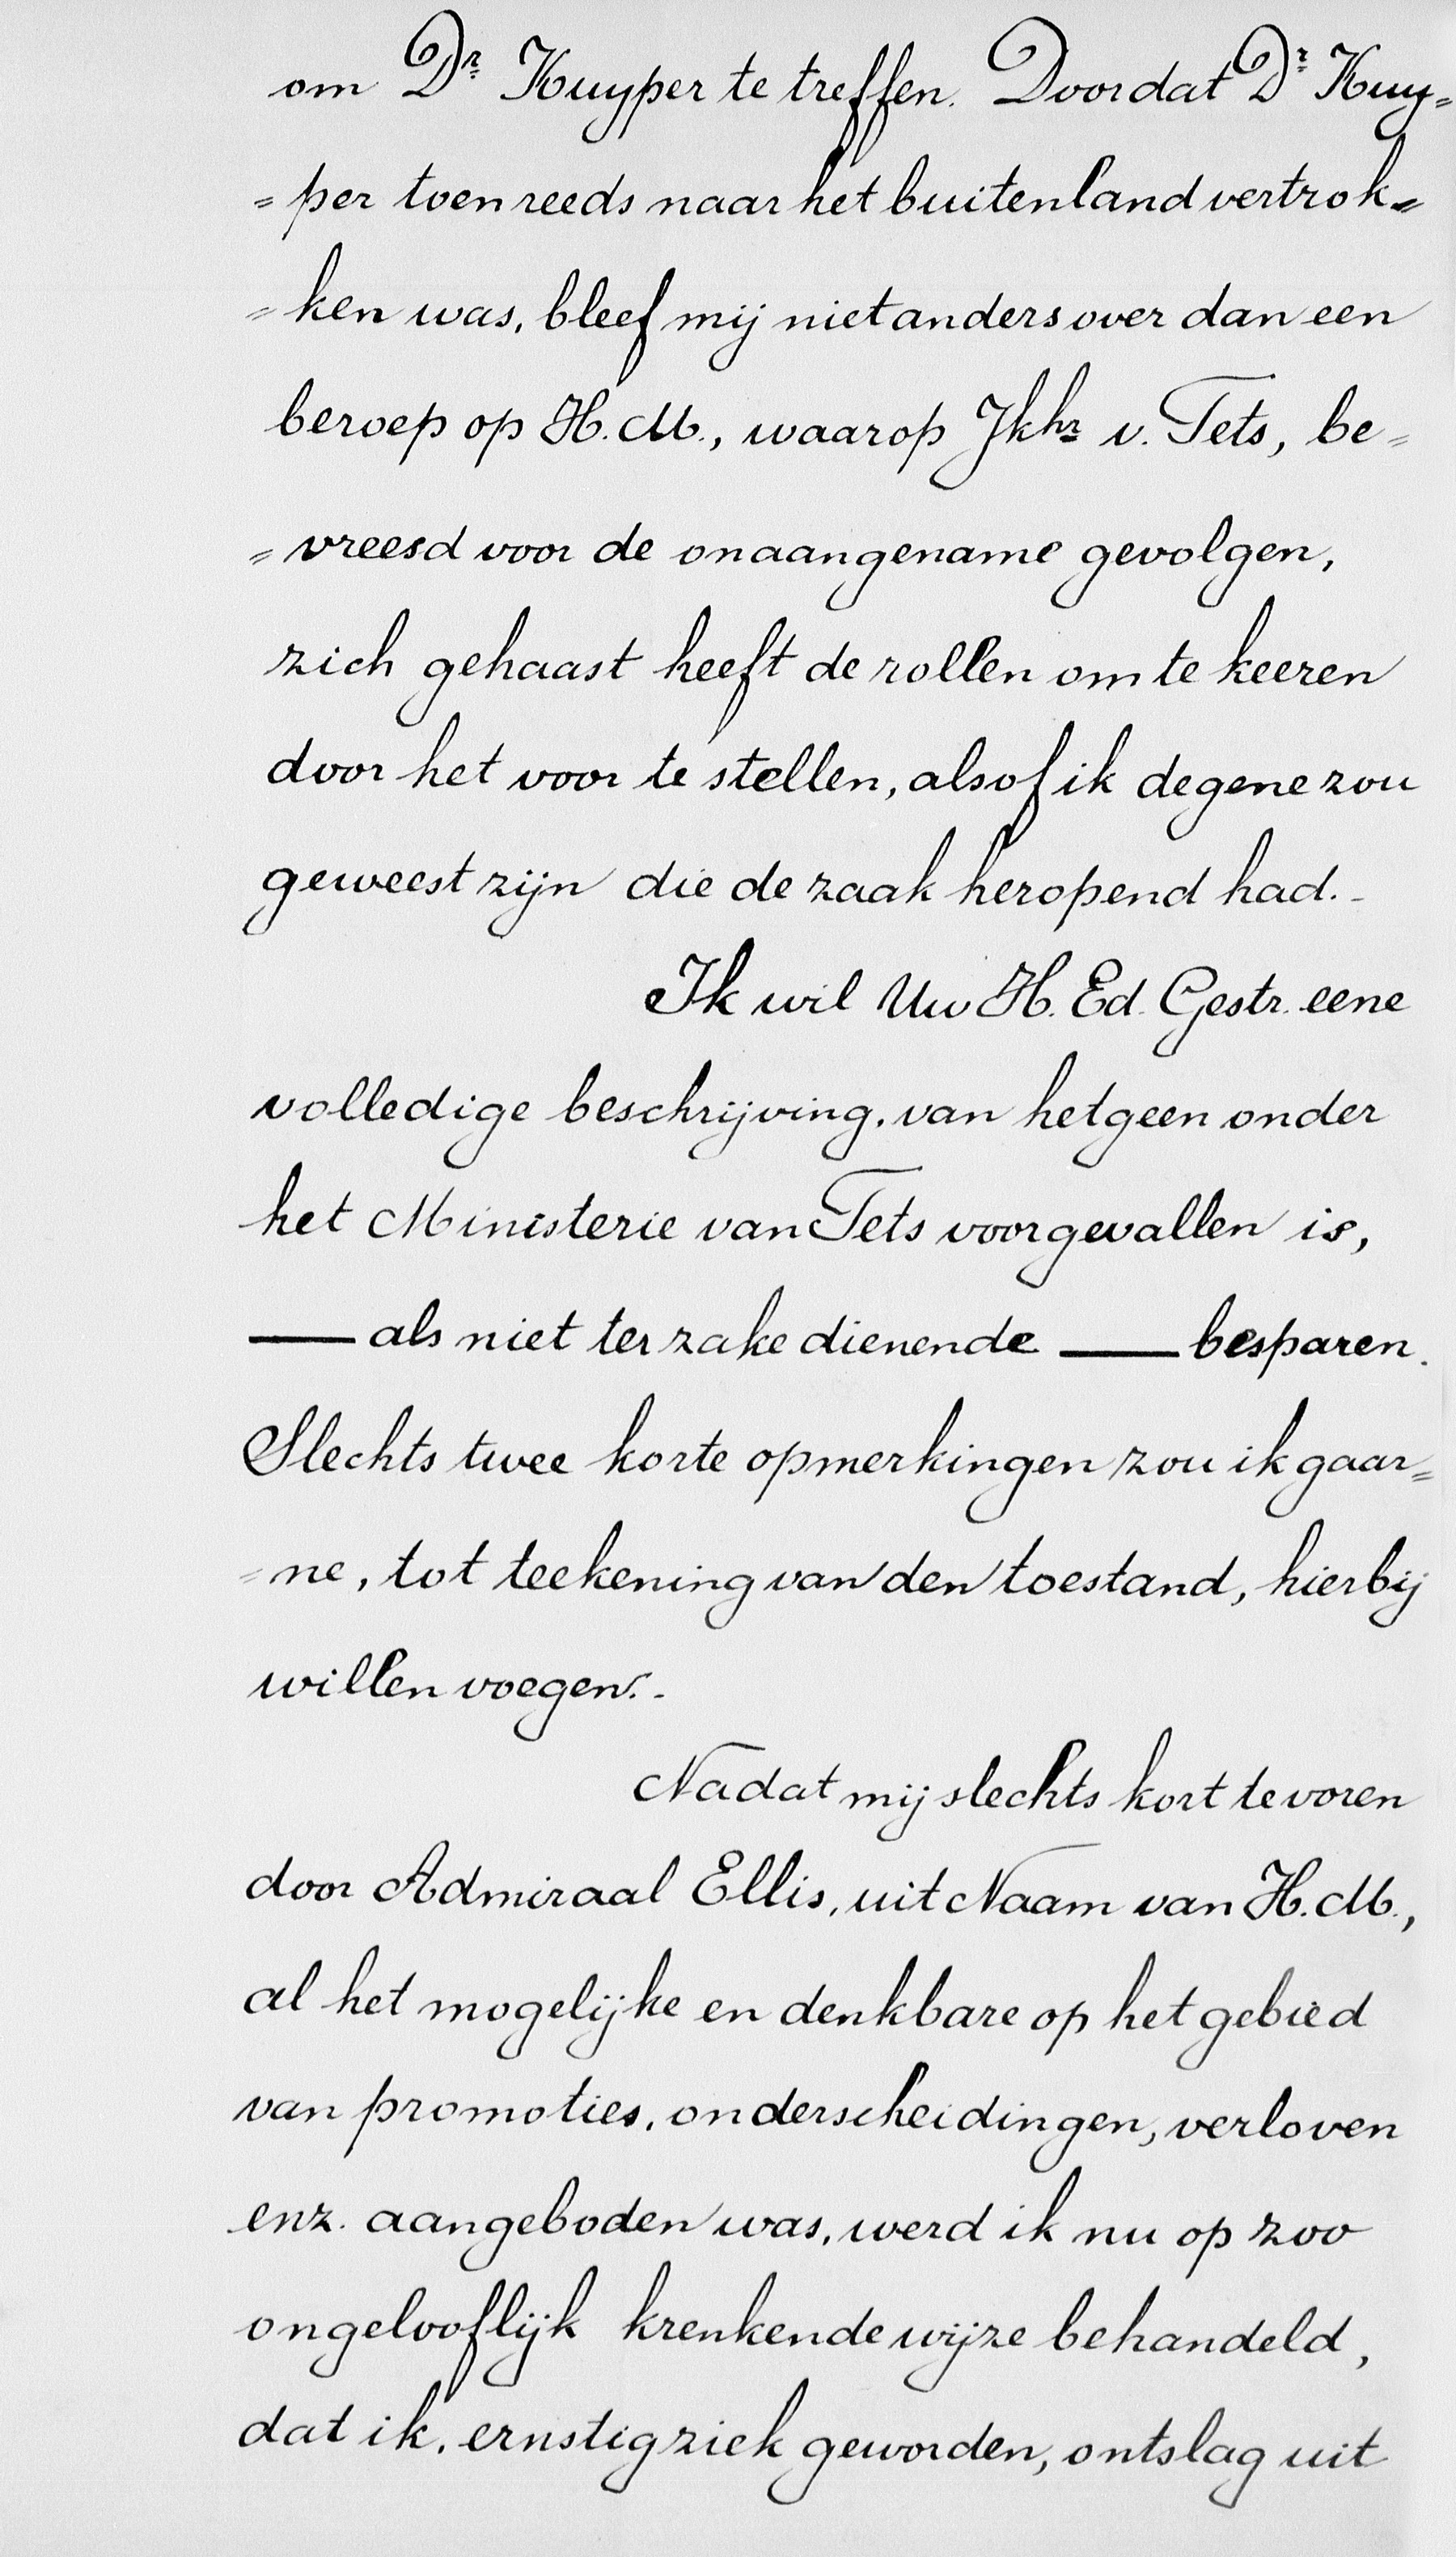 om Dr Kuyper te treffen. Doordat Dr Kuy=
=per toen reeds naar het buitenland vertrok=
=ken was, bleef mij niet anders over dan een
beroep op H.M., waarop Jkhr v. Tets, be=
=vreesd voor de onaangename gevolgen,
zich gehaast heeft de rollen om te keeren
door het voor te stellen, alsof ik degene zou
geweest zijn die de zaak heropend had.-
Ik wil Uw H. Ed. Gestr. eene
volledige beschrijving, van hetgeen onder
het Ministerie van Tets voorgevallen is,
— als niet ter zake dienende — besparen.
Slechts twee korte opmerkingen zou ik gaar=
=ne, tot teekening van den toestand, hierbij
willen voegen.-
Nadat mij slechts kort te voren
door Admiraal Ellis, uit Naam van H.M.,
al het mogelijke en denkbare op het gebied
van promoties, onderscheidingen, verloven
enz. aangeboden was, werd ik nu op zoo
ongelooflijk krenkende wijze behandeld,
dat ik, ernstig ziek geworden, ontslag uit